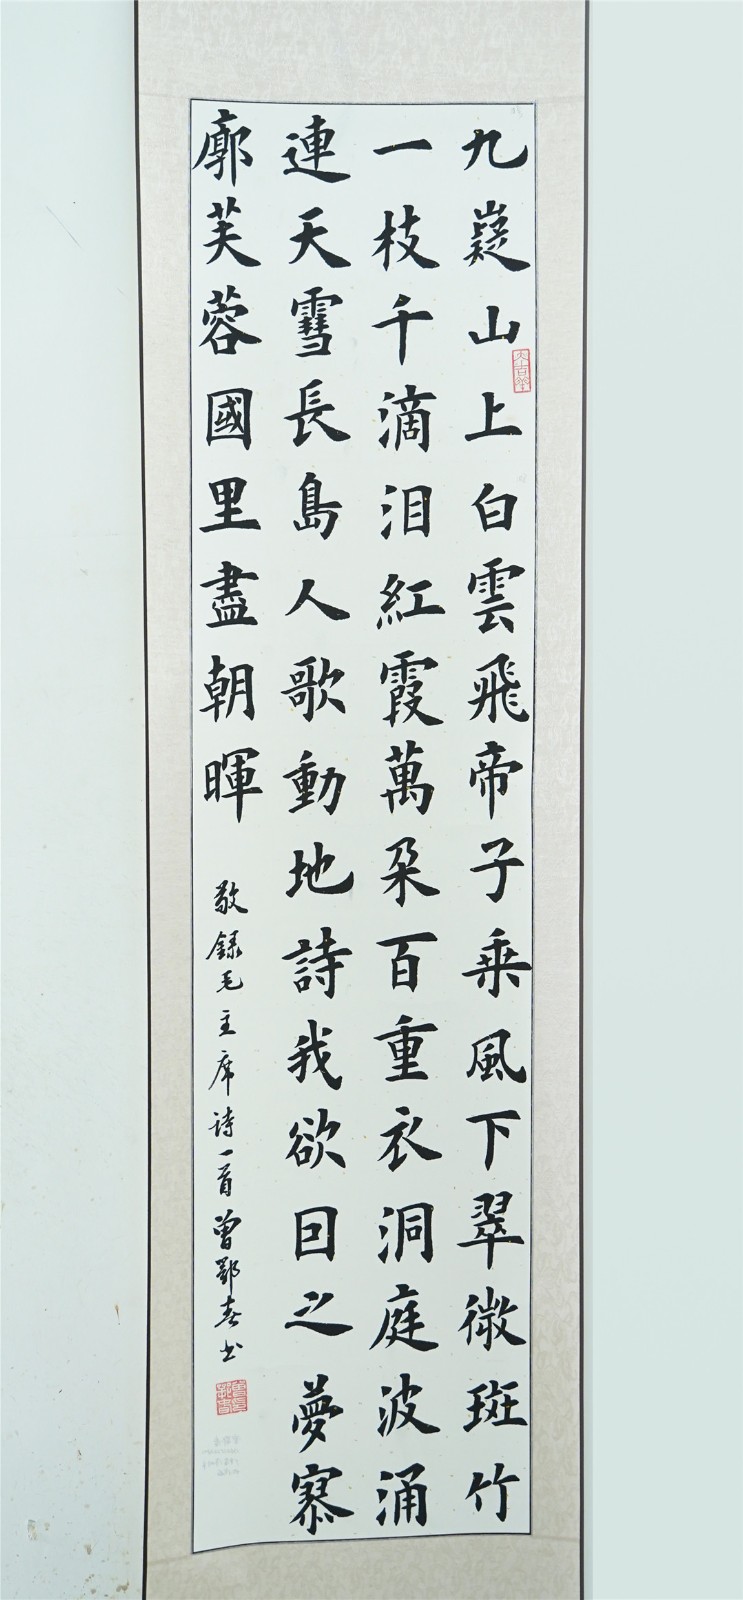 九嶷山上白雲飛帝子乘風下翠微斑竹
一枝千滴泪紅霞萬朵百重衣洞庭波涌
連天雪長島人歌動地詩我欲回之夢寥
廓芙蓉國里盡朝暉
敬録毛主席诗一首曾鄂春书
大吉羊